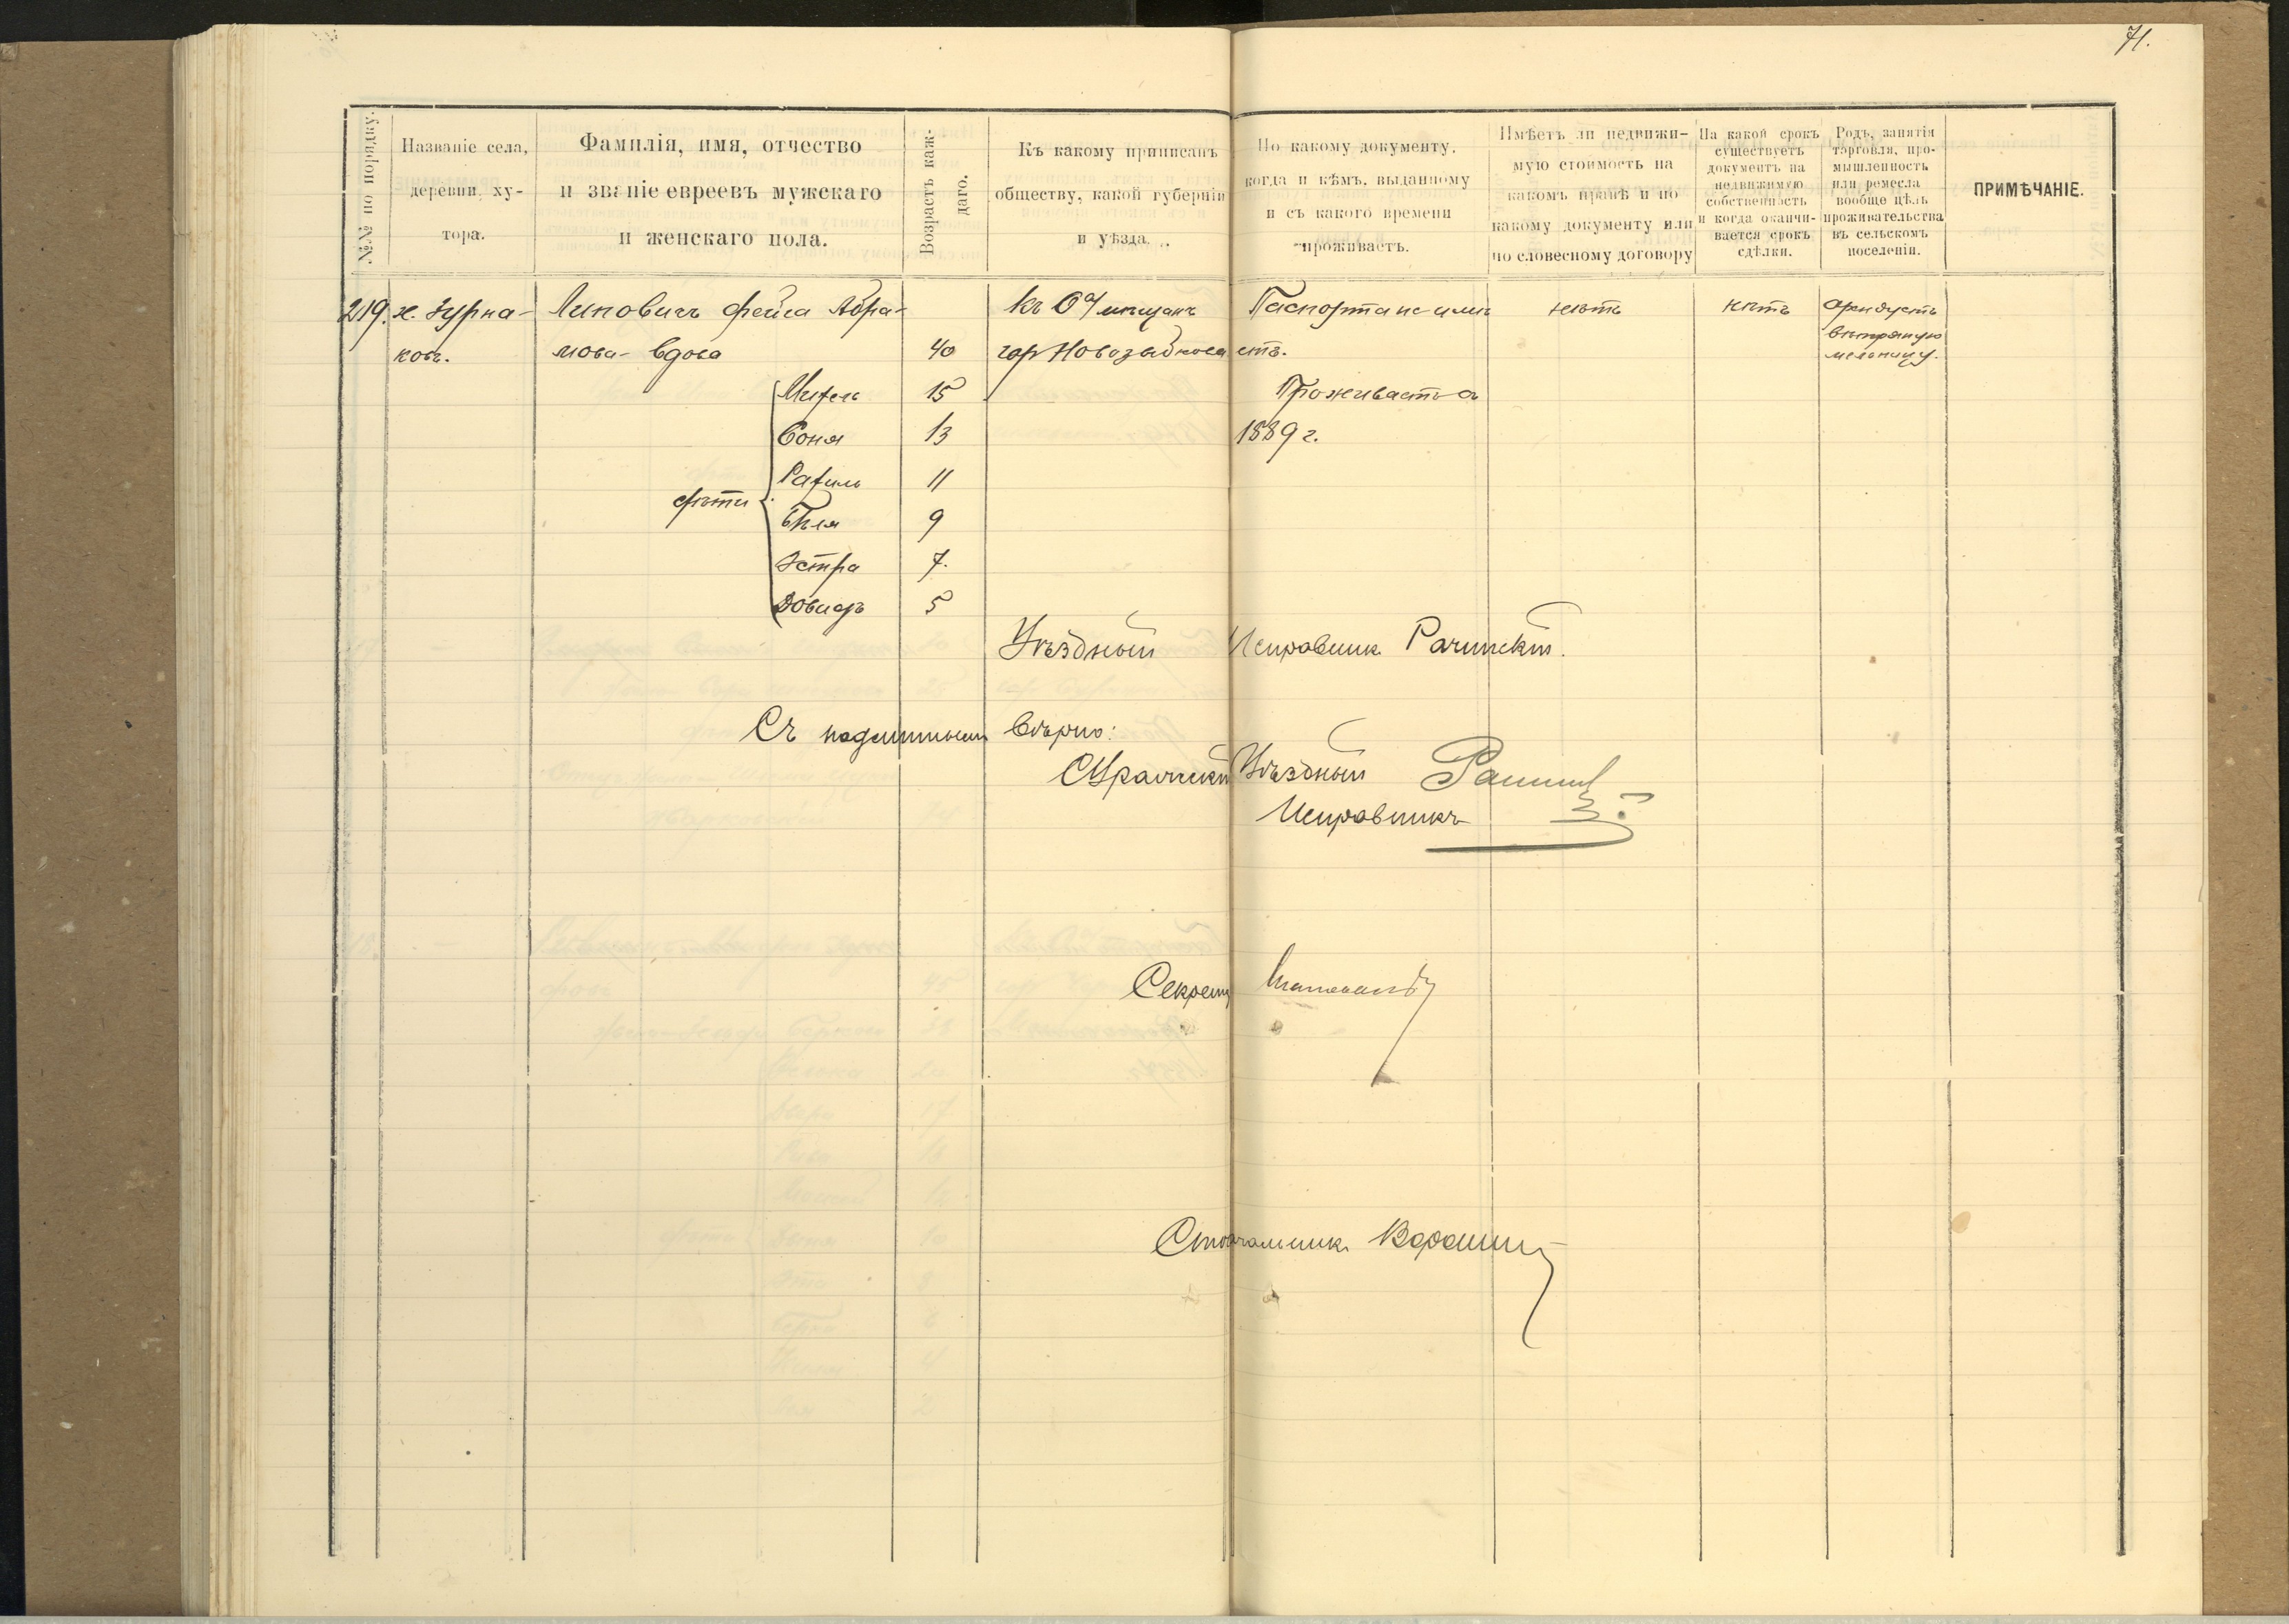 71.
№№ по порядку.
Названіе села,
деревни, ху-
тора.
Фамилія, имя, отчество
и званіе евреевъ мужскаго
и женскаго пола.
Возрастъ каж-
даго.
Къ какому приписанъ
обществу, какой губерніи
и уѣзда.
По какому документу,
когда и кѣмъ, выданному
и съ какого времени
проживаетъ.
Имѣетъ ли недвижи-
мую стоимость на
какомъ правѣ и по
какому документу или
по словесному договору
На какой срокъ
существуетъ
документъ на
недвижимую
собственность
и когда оканчи-
вается срокъ
сдѣлки.
Родъ, занятія
торговля, про-
мышленность
или ремесла
вообще цѣль
проживательства
въ сельскомъ
поселеніи.
ПРИМѢЧАНІЕ.
219. х. Гурна- Липовичъ Фейга Абра- къ мѣщанъ Паспорта не имѣ нѣтъ нѣтъ арендуетъ
ковъ. мова - вдова 40 гор Новозыбкова етъ. вѣтряную
мельницу.
15 Проживаетъ съ
Соня 13 1889 г.
Рахиль 11
дѣти
9
Эстра 7.
Довидъ 5
Уѣздный Исправникъ Рачинскій.
Съ подлиннымъ вѣрно:
Суражскій Уѣздный
Исправникъ
Секретарь
Столоначальникъ